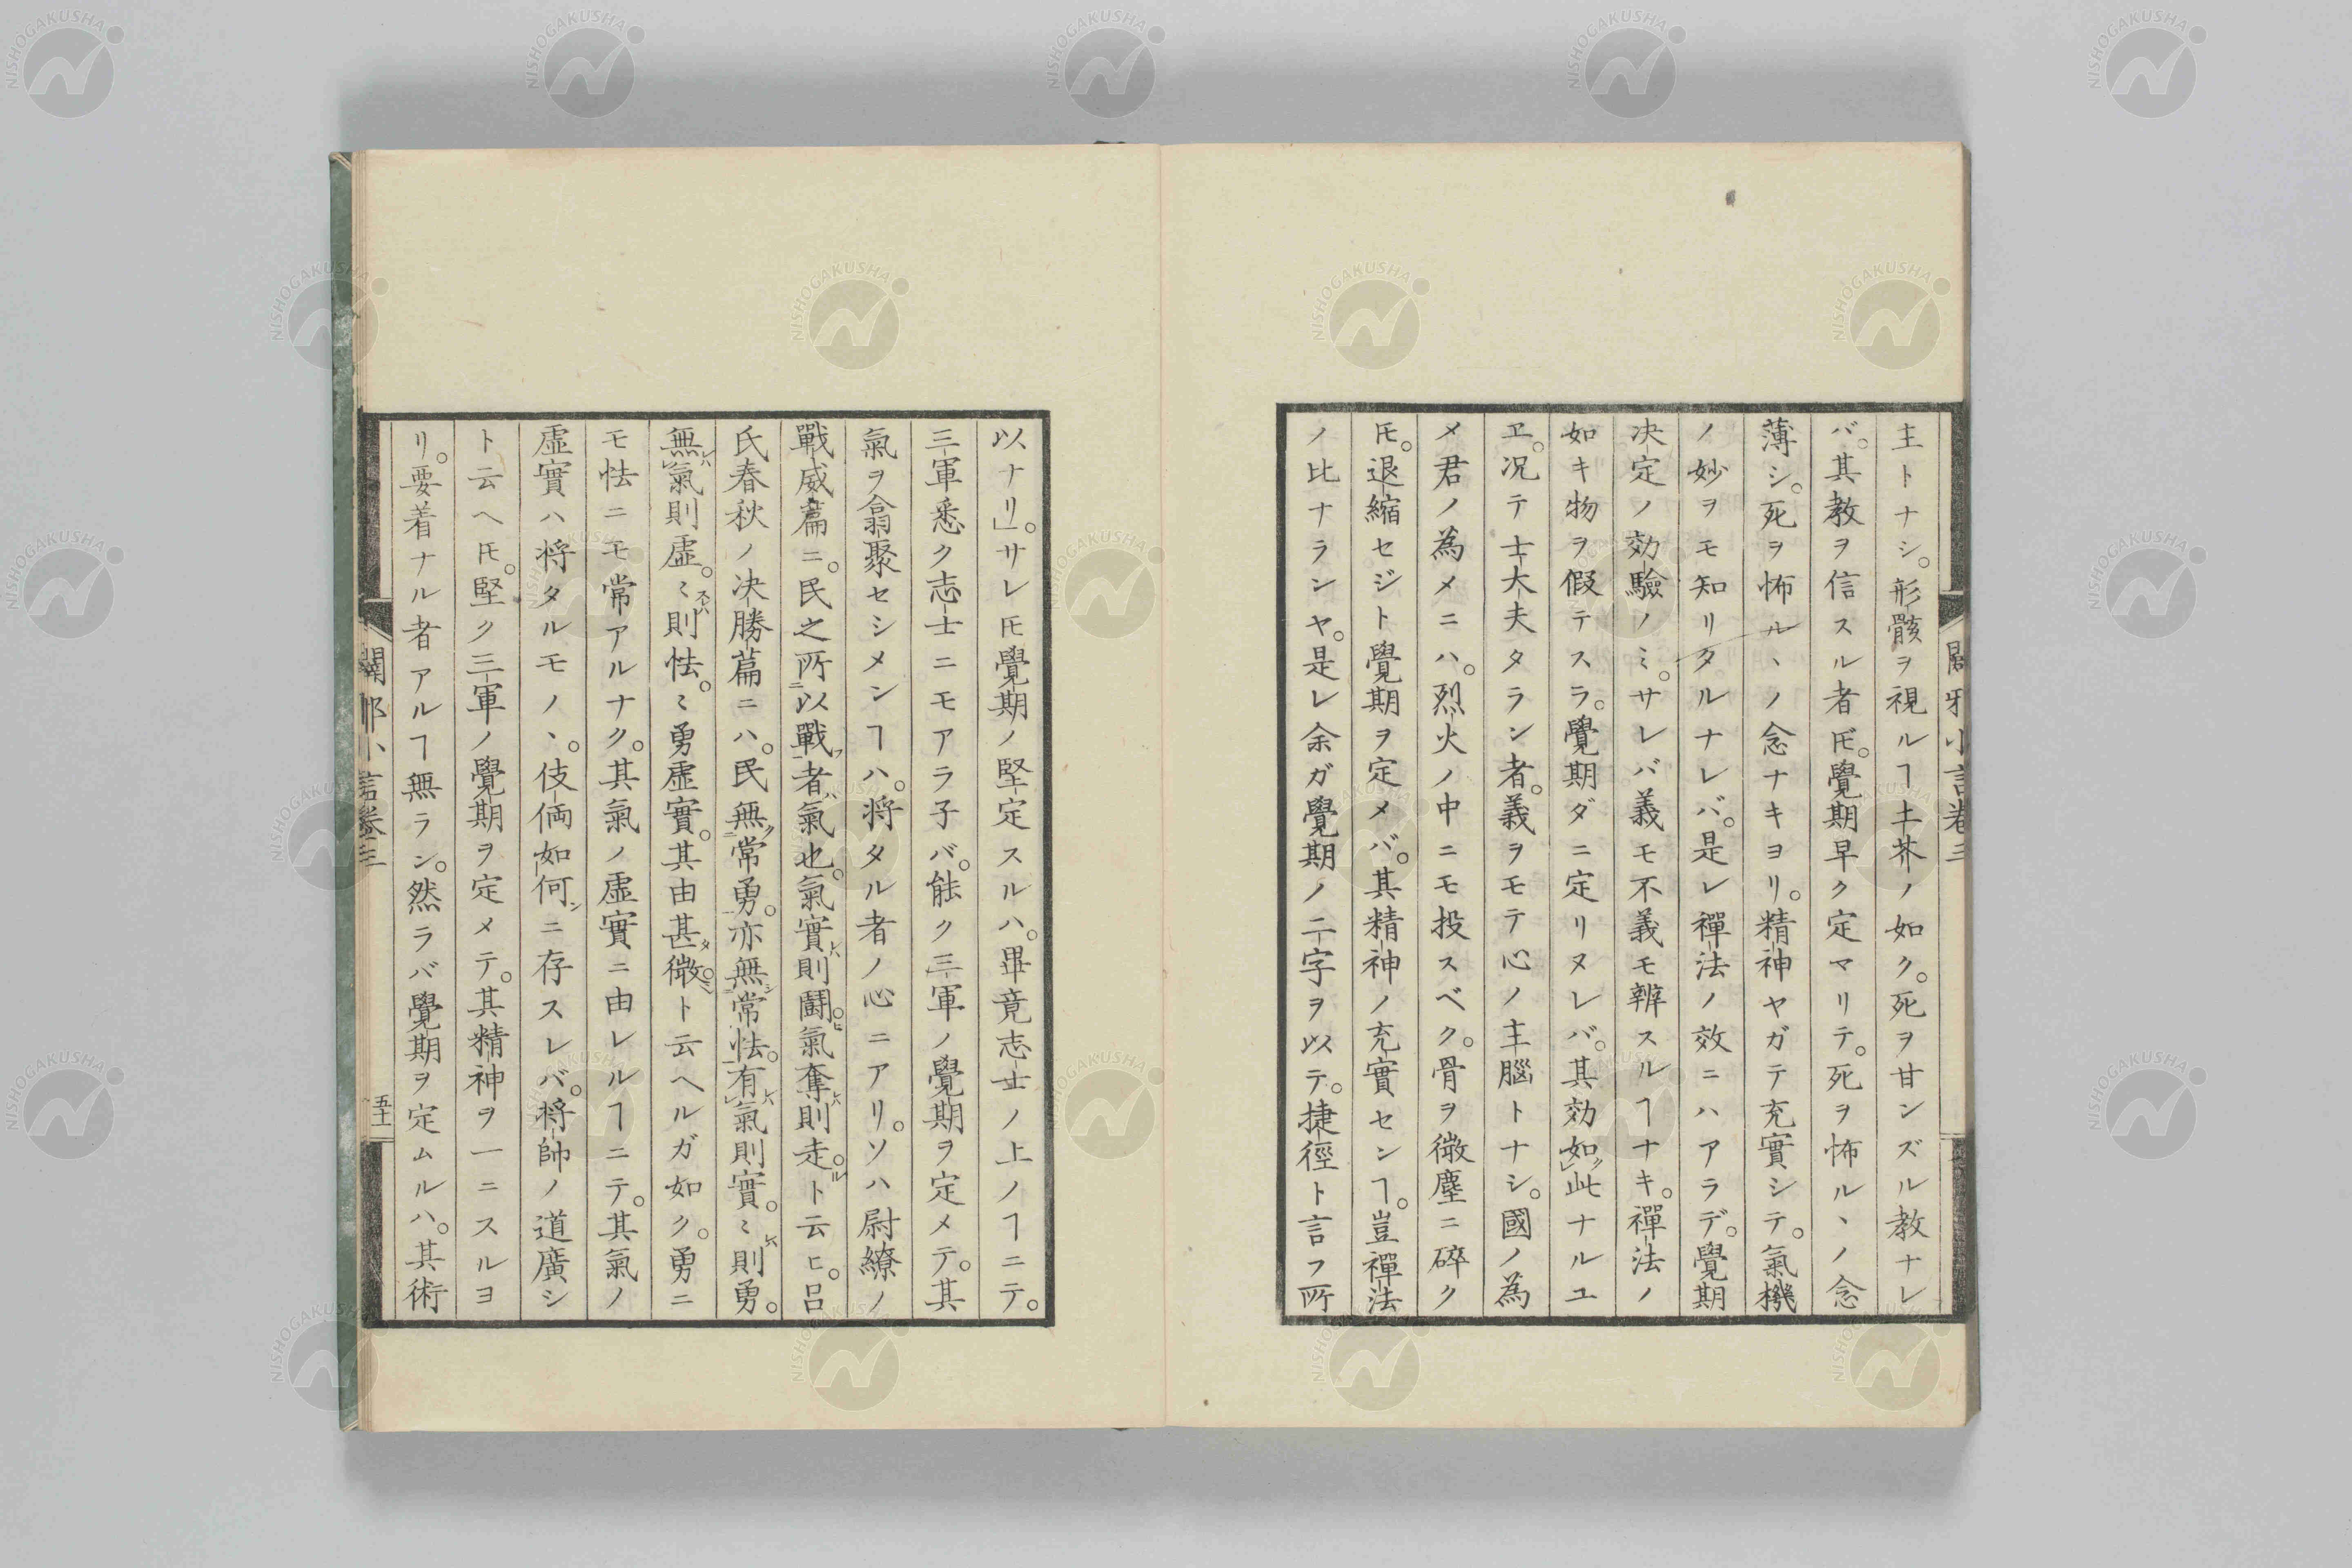 主トナシ。形骸ヲ視ルヿ土芥ノ如ク。死ヲ甘ンズル教ナレ
バ。其教ヲ信スル者ㇳモ。覺期早ク定マリテ。死ヲ怖ルヽノ念
薄シ。死ヲ怖ルヽノ念ナキヨリ。精神ヤガテ充實シテ。氣機
ノ妙ヲモ知リタルナレバ。是レ禪法ノ效ニハアラデ。覺期
決定ノ効驗ノミ。サレバ義モ不義モ辨スルヿナキ。禪法ノ
如キ物ヲ假テスラ。覺期ダニ定リヌレバ。其効如此ナルユ
ヱ。况テ士大夫タラン者。義ヲモテ心ノ主腦トナシ。國ノ為
メ君ノ為メニハ。烈火ノ中ニモ投スベク。骨ヲ微塵ニ碎ク
ㇳモ。退縮セジト覺期ヲ定メバ。其精神ノ充實センヿ。豈禪法
ノ比ナランヤ。是レ余ガ覺期ノ二字ヲ以テ。捷徑ト言フ所
以ナリ」。サレㇳモ覺期ノ堅定スルハ。畢竟志士ノ上ノヿニテ。
三軍悉ク志士ニモアラ子バ。能ク三軍ノ覺期ヲ定メテ。其
氣ヲ翕聚セシメンヿハ。将タル者ノ心ニアリ。ソハ尉繚ノ
戰威篇ニ。民之所以戰者氣也。氣實則鬪。氣奪則走。ト云ヒ。呂
氏春秋ノ決勝篇ニハ。民無常勇。亦無常怯。有氣則實。〻則勇。
無氣則虛。〻則怯。〻勇虛實。其由甚微。ト云ヘルガ如ク。勇ニ
モ怯ニモ常アルナク。其氣ノ虛實ニ由レルヿニテ。其氣ノ
虛實ハ将タルモノヽ。伎倆如何ニ存スレバ。将帥ノ道廣シ
ト云ヘㇳモ。堅ク三軍ノ覺期ヲ定メテ。其精神ヲ一ニスルヨ
リ。要着ナル者アルヿ無ラン。然ラバ覺期ヲ定ムルハ。其術
闢邪小言卷三
五十一